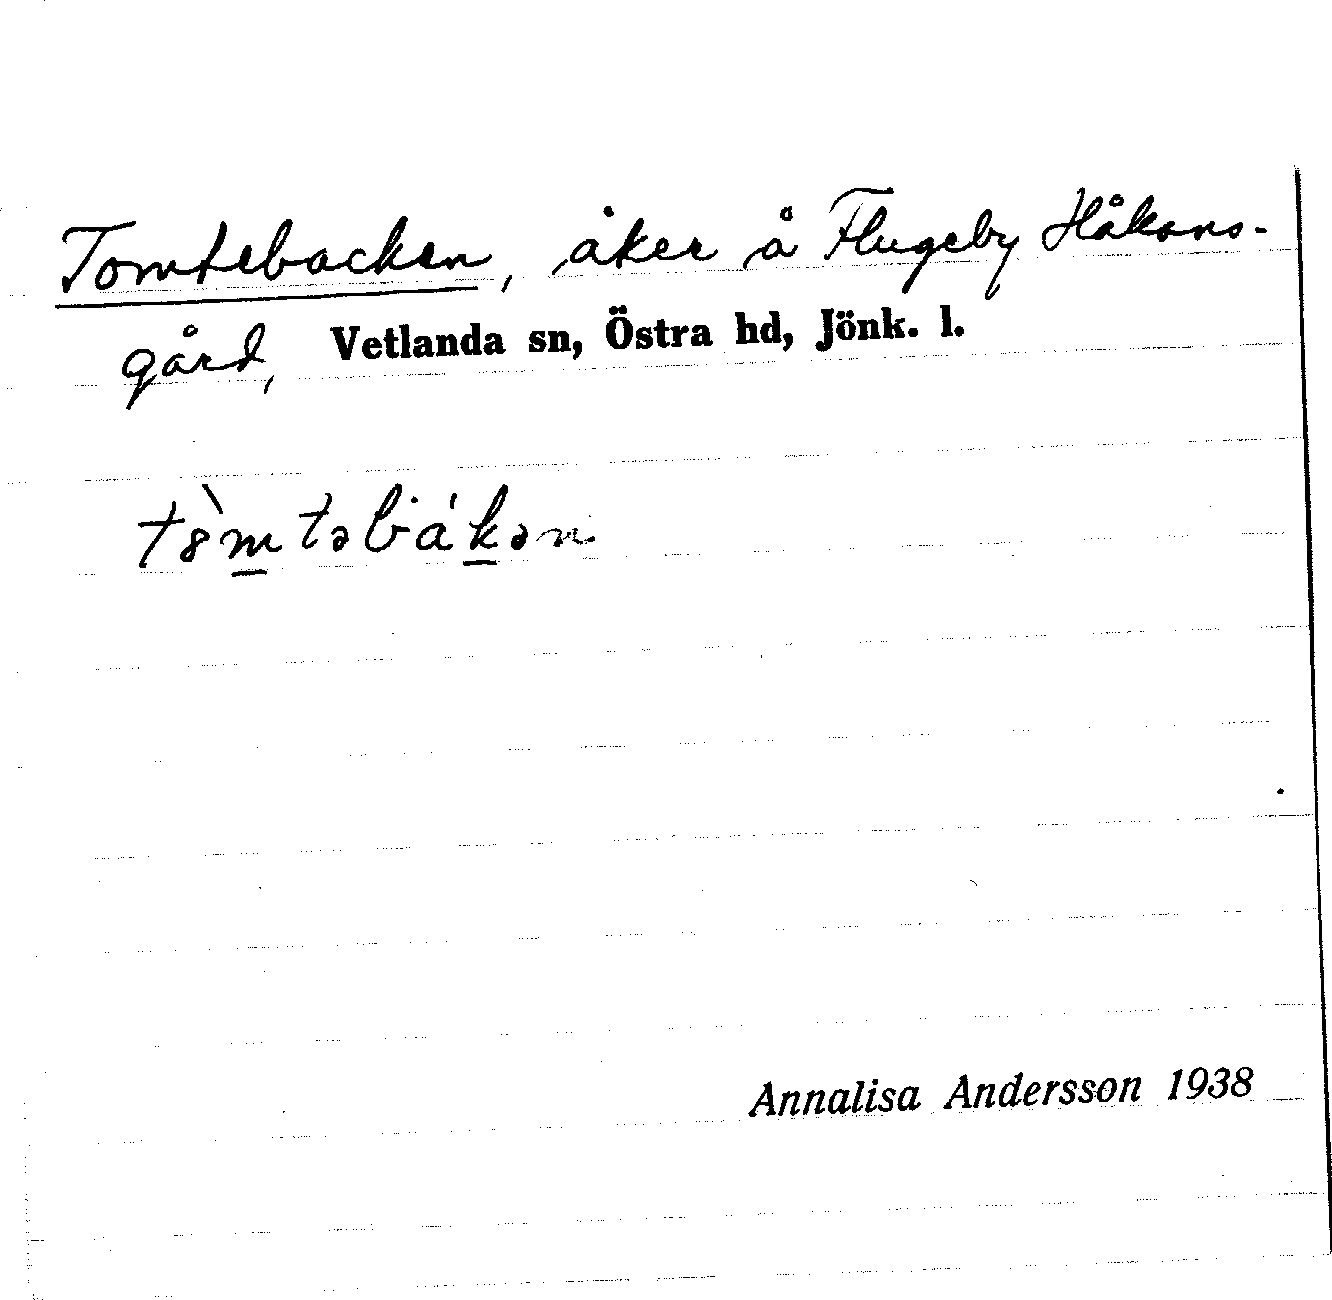 Tomtebacken, åker å Flugeby Håkans-
gård, Vetlanda sn, Östra hd, Jönk. l.
t8̀mtəbákən
Annalisa Andersson 1938